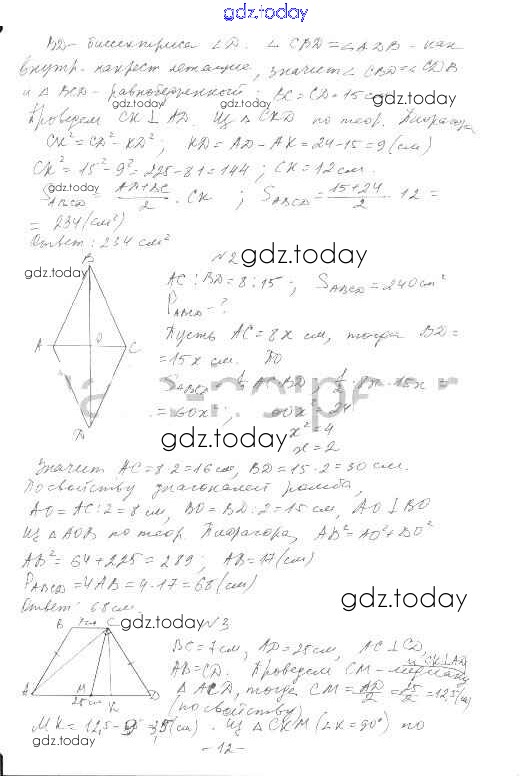 gdz.today
BD - биссектриса ∠D. ∠CBD = ∠ADB - как
внутр. накрест лежащие, значит ∠CBD = ∠CDB
и △BCD - равнобедренный; BC = CD = 15 см.
Проведем CK ⊥ AD. Из △CKD по теор. Пифагора
CK² = CD² - KD²; KD = AD - AK = 24 - 15 = 9 (см)
CK² = 15² - 9² = 225 - 81 = 144; CK = 12 см.
gdz.today
S_ABCD = (AD+BC)/2 · CK; S_ABCD = (15+24)/2 · 12 =
= 234 (см²)
Ответ: 234 см²
№2
gdz.today
gdz.today
AC : BD = 8 : 15; S_ABCD = 240 см²
P_ABCD = ?
Пусть AC = 8x см, тогда BD =
= 15x см.
S_ABCD = ½ AC · BD, ½ · 8x · 15x =
= 60x²; 60x² = 24
x² = 4
x = 2
B
A O C
D
gdz.today
Значит AC = 8·2 = 16 см, BD = 15·2 = 30 см.
По свойству диагоналей ромба,
AO = AC : 2 = 8 см, BO = BD : 2 = 15 см, AO ⊥ BO
Из △AOB по теор. Пифагора, AB² = AO² + BO²
AB² = 64 + 225 = 289; AB = 17 (см)
P_ABCD = 4AB = 4 · 17 = 68 (см)
Ответ: 68 см.
gdz.today
№3
B 7см C
A M K D
25 см
BC = 7 см, AD = 25 см, AC ⊥ CD,
AB = CD. Проведем CM - медиану и CK ⊥ AD
△ACD, тогда CM = AD/2 = 25/2 = 12,5 (см)
(по свойству)
MK = 12,5 - 9 = 3,5 (см). Из △CKM (∠K = 90°) по
gdz.today
gdz.today
- 12 -